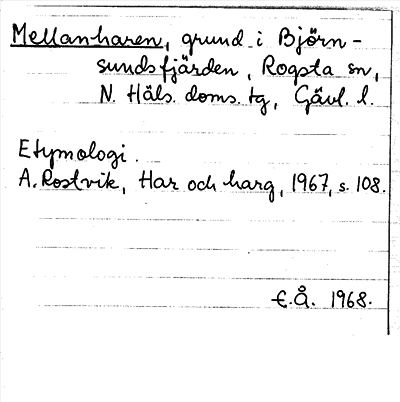 Mellanharen, grund i Björn-
sundsfjärden, Rogsta sn,
N. Häls. doms. tg, Gävl. l.
Etymologi.
A. Rostvik, Har och harg, 1967, s. 108.
E.Å. 1968.